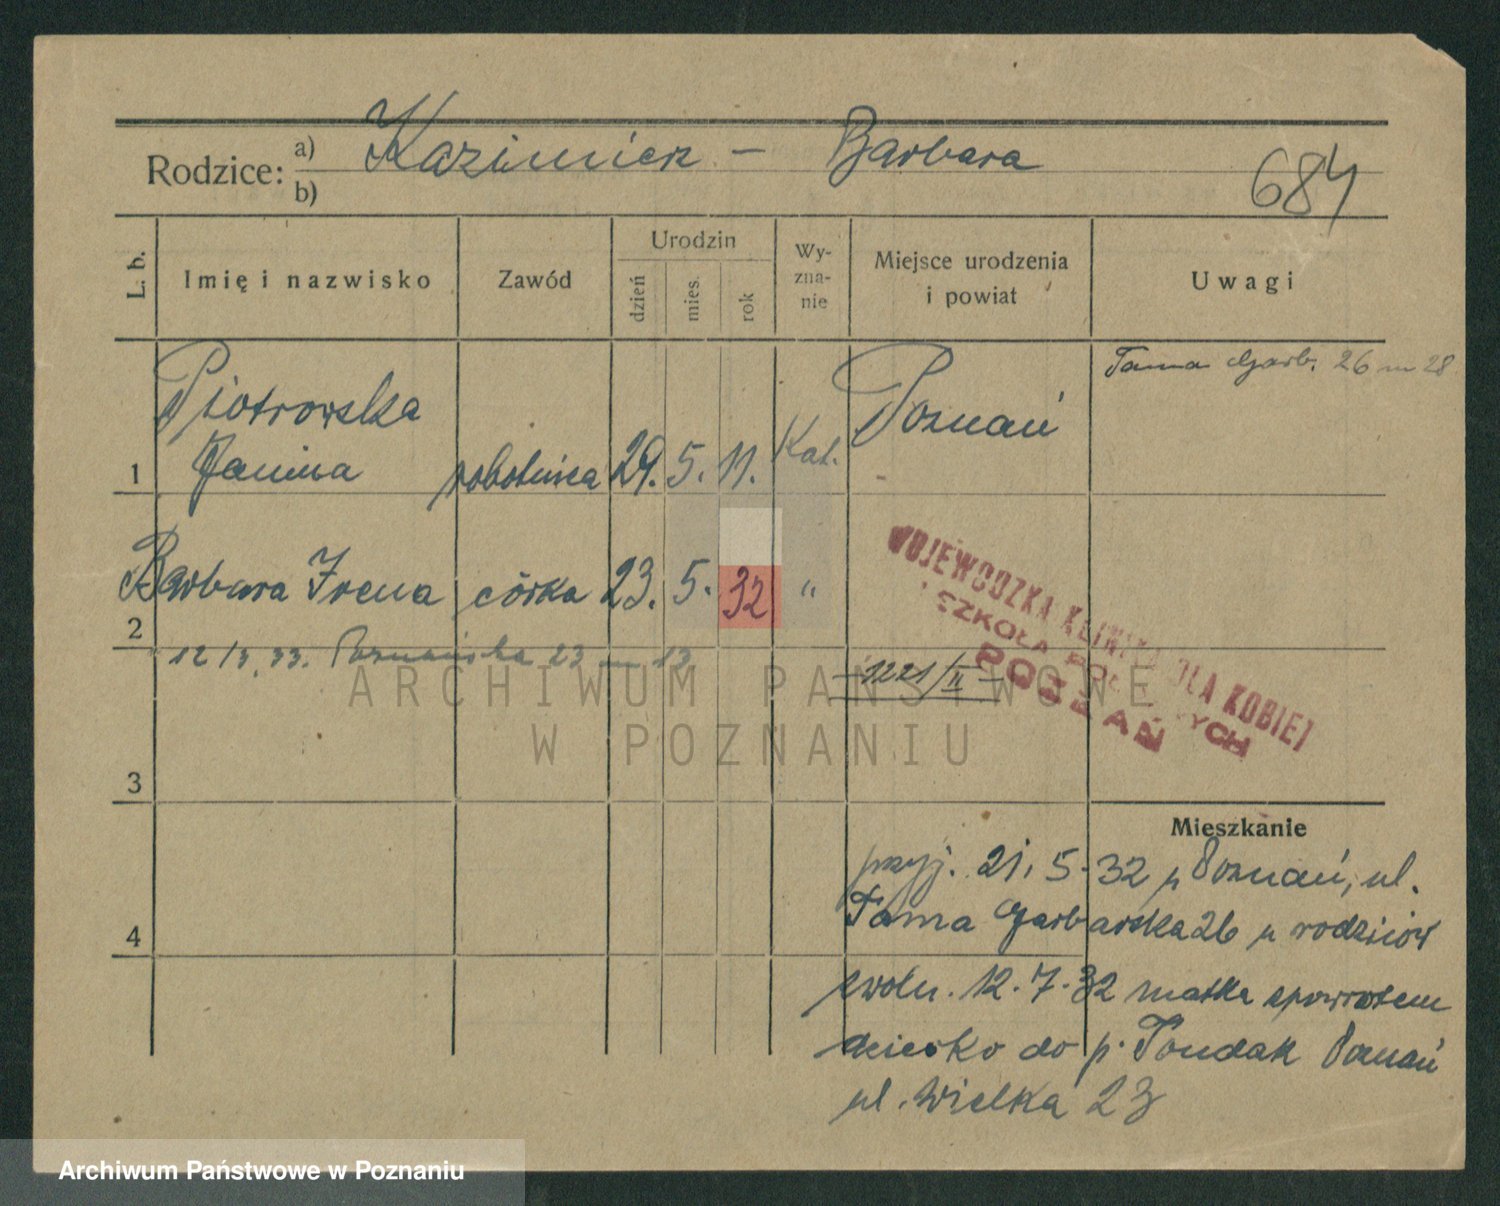 Rodzice: a) Kazimierz — Barbara
b)
684
L. b.
Imię i nazwisko
Zawód
Urodzin
dzień
mies.
rok
Wy-
zna-
nie
Miejsce urodzenia
i powiat
Uwagi
Tama Garb. 26 m 28
Piotrowska
1 Janina robotnica 29. 5. 11. Kat. Poznań
Barbara Irena córka 23. 5. 32 "
2
12/3.33. Poznańska 23 m 13
WOJEWÓDZKA KLINIKA DLA KOBIET
I SZKOŁA POŁOŻNYCH
POZNAŃ
1221/II
3
Mieszkanie
przyj. 21. 5. 32 z Poznań, ul.
4 Tama Garbarska 26 u rodziców
zwoln. 12. 7. 32 matka spowrotem
dziecko do p. Tondak Poznań
ul. Wielka 23
ARCHIWUM PAŃSTWOWE
W POZNANIU
Archiwum Państwowe w Poznaniu